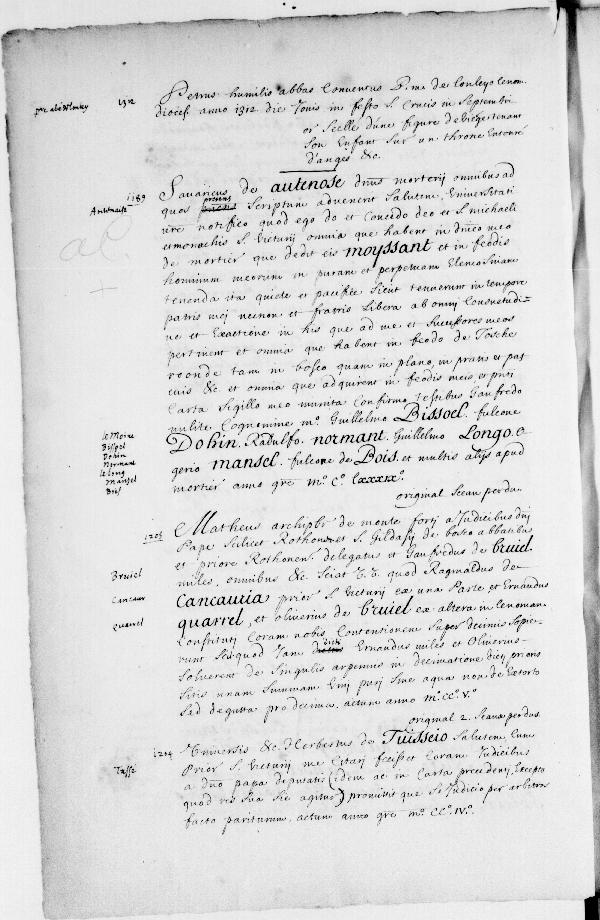 1312 Petrus humilis abbas Conventus B. m. de Lonleyo Cenom.
diocess. anno 1312 die Jouis in festo S. Crucis in Septembri
or Scelle d'une figure de viege tenant
Son Enfant Sur un throne Entouré
d'anges &c.
Antenaise 1189 Savaricus de autenose dnus morterij omnibus ad
quos presens Scriptum advenerit Salutem, Universitati
vre notifico quod ego do et Concedo deo et S. michaeli
et monachis S. Victurij omnia que habent in dnico meo
de mortier que dedit eis moyssant et in feodis
hominum meorum in puram et perpetuam Elemosinam
tenenda ita quiete et pacifice Sicut tenuerunt in tempore
patris mei necnon et fratris Libera ab omni Consuetudi-
ne et Exactione in his que ad me et Successores meos
pertinent et omnia que habent in feodo de Fosche
roonde tam in bosco quam in plano, in pratis et pas
cuis &c et omnia que adquirent in feodis meis, et pnti
Carta Sigillo meo munita Confirmo, testibus Gaufredo
milite Cognomine m°. Guillelmo Bissoel. fulcone
le Moine
Bissel
Dohin
Normant
le long
Mansel
Bois
Dohin. Radulfo. normant. Guillelmo Longo. o
gerio mansel. fulcone de Bois. et multis alijs apud
mortier anno gre m°. C°. Lxxxix°.
original Sceau perdu.
1205 Matheus archipbr de monte forti a Judicibus dni
Pape Scilicet Rothon et S. Gildasij de bosco abbatibus
et priore Rothonen. delegatus et Gaufredus de bruiel.
Bruiel
miles, omnibus &c Sciat V. V. quod Raginaldus de
Cancaur
Cancauria prior S. Victurij ex una Parte et Ernandus
Quarrel
quarrel, et oliverius de bruiel ex altera in Cenoman.
Constituti Coram nobis Contentionem Super decimis Sopie-
runt Scilicet quod Jam dicti Ernandus miles et Oliverius
Solverent de Singulis arpennis in decimatione
Sitis unam Summam Vini puri Sine aqua non de Extorto
Sed de gutta pro decima. actum anno m°. CC°. V°.
original 2. Sceaux perdus.
Tussé 1204 Universis &c. Herbertus de Tuisseio Salutem, Cum
Prior S. Victurij me Citari fecisset Coram Judicibus
a dno papa deputatis (idem ac in Carta precedenti, Excepto
quod res Sua Sic agitur) promittit que Se Judicio per arbitros
facto pariturum, actum anno gre m°. CC°. IV°.